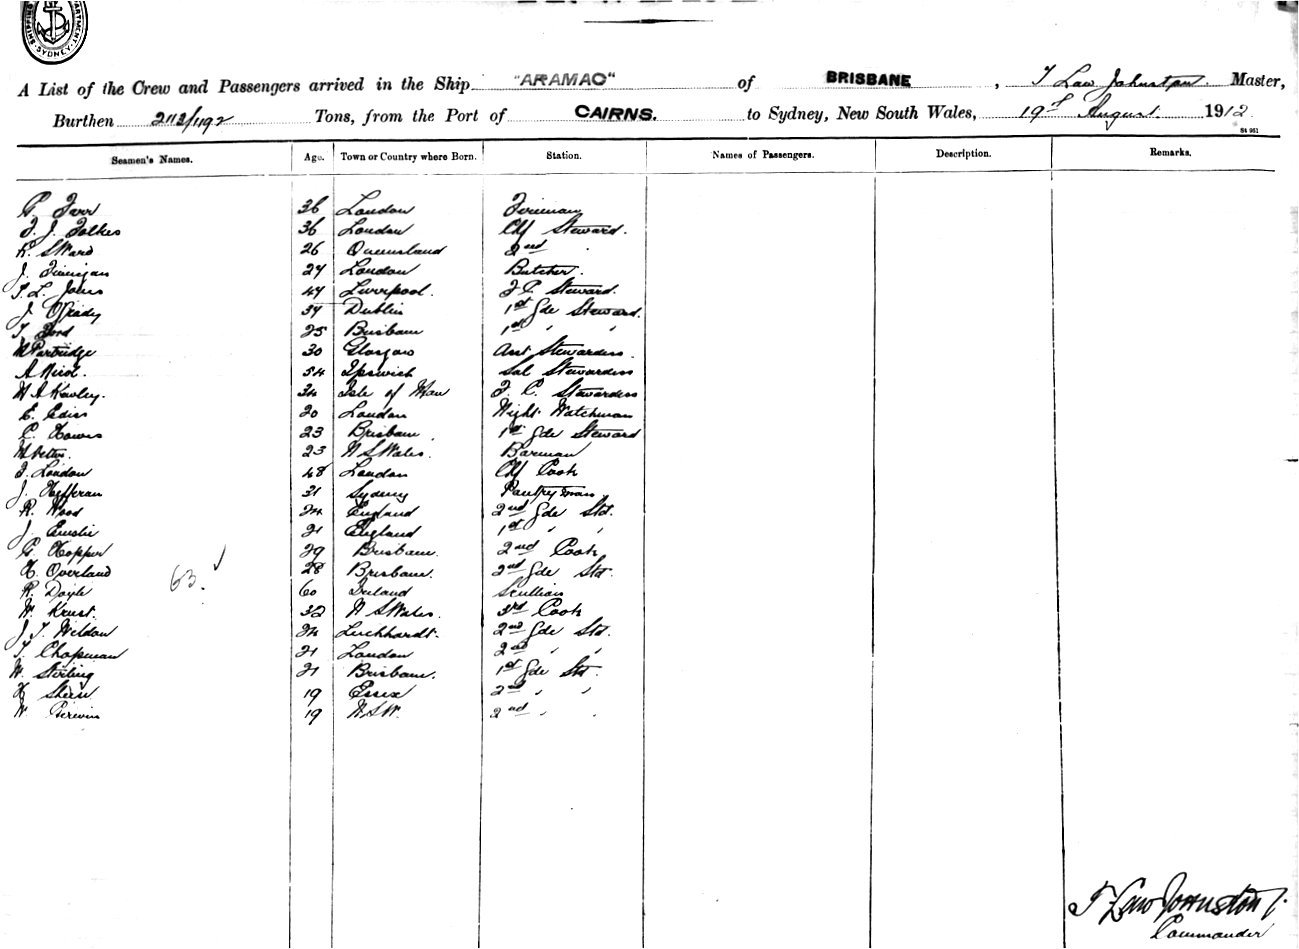 SHIPPING DEPARTMENT
SYDNEY
A List of the Crew and Passengers arrived in the Ship "ARAMAC" of BRISBANE, T Law Johnston Master,
Burthen 2113/1192 Tons, from the Port of CAIRNS. to Sydney, New South Wales, 19th August 1912
St 951
Seamen's Names. Age. Town or Country where Born. Station. Names of Passengers. Description. Remarks.
G. Farr 36 London Fireman
F. J. Folkes 36 London Chf Steward.
Ward 26 Queensland 2nd "
J. Finnigan 27 London Butcher.
T. L. Johns 47 Liverpool. F C. Steward.
J. O'Grady 37 Dublin 1st Gde Steward.
T. Ford 25 Brisbane 1st " "
M Partridge 30 Glasgow Asst Stewardess.
A Nicol. 54 Ipswich Sal Stewardess
M A Kewley. 34 Isle of Man F. C. Stewardess
E. Ediss 20 London Night Watchman
C. Howes 23 Brisbane 1st Gde Steward
23 N S Wales. Barman
F. London 48 London Chf Cook
J. Heffernan 31 Sydney Pantryman
R. Wood 24 England 2nd Gde Std.
J. 21 England 1st " "
G. Hopper 29 Brisbane. 2nd Cook
H. Overland 28 Brisbane. 2nd Gde Std.
63. ✓
R. Doyle 60 Ireland Scullion
W. Krust. 32 N S Wales. 3rd Cook
J. T. Weldon 24 Leichhardt. 2nd Gde Std.
T. Chapman 21 London 2nd " "
W. Stirling 21 Brisbane. 1st Gde Std.
H 19 Essex 2nd " "
W. 19 N.S.W. 2nd " "
T Law Johnston.
Commander